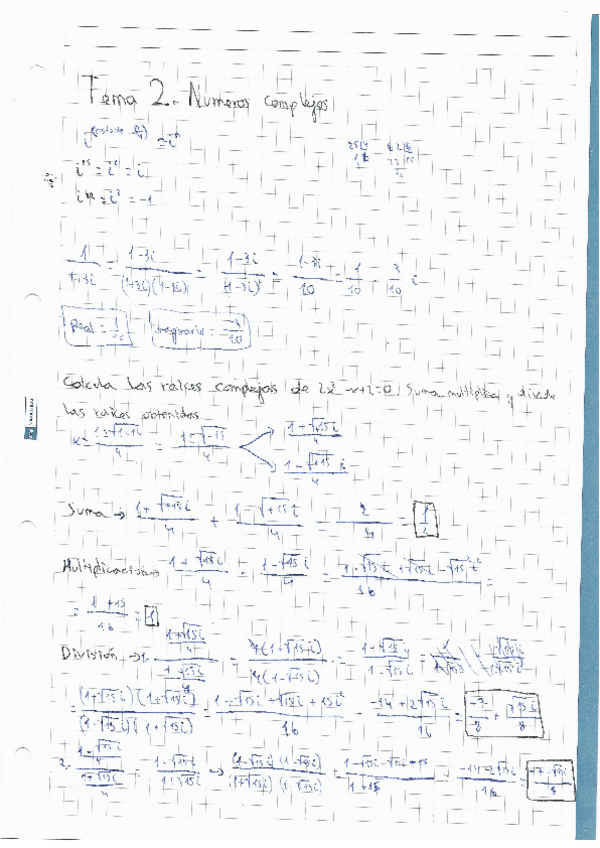 Tema 2.- Numeros complejos
i^15 = i^3 = i
= i^2 = -1
1/(1+3i) = (1-3i)/((1+3i)(1-3i)) = (1-3i)/(1-3i)² = (1-3i)/10 = 1/10 - 3/10 i
Real = 1/10 Imaginaria = -3/10
Calcula las raíces complejas de 2x²-x+2=0. Suma multiplica y divide
las raíces obtenidas
x = (1±√1-16)/4 = (1±√-15)/4
(1+√+15 i)/4
(1-√+15 i)/4
Suma → (1+√+15 i)/4 + (1-√+15 i)/4 = 2/4 = 1/2
Multiplicacion → (1+√15 i)/4 · (1-√15 i)/4 = (1-√15 i+√15 i-√15² i²)/16 =
= (1+15)/16 = 1
División → 1- ((1+√15 i)/4)/((1-√15 i)/4) = 4(1+√15 i)/4(1-√15 i) = (1+√15 i)/(1-√15 i)
= (1+√15 i)(1+√15 i)/(1-√15 i)(1+√15 i) = (1+√15 i+√15 i+15i²)/16 = (-14+2√15 i)/16 = -7/8 + √15 i/8
2- ((1-√15 i)/4)/((1+√15 i)/4) = (1-√15 i)/(1+√15 i) → (1-√15 i)(1-√15 i)/(1+√15 i)(1-√15 i) = (1-√15 i-√15 i-15)/(1+15) = (-14-2√15 i)/16 = (-7-√15 i)/8